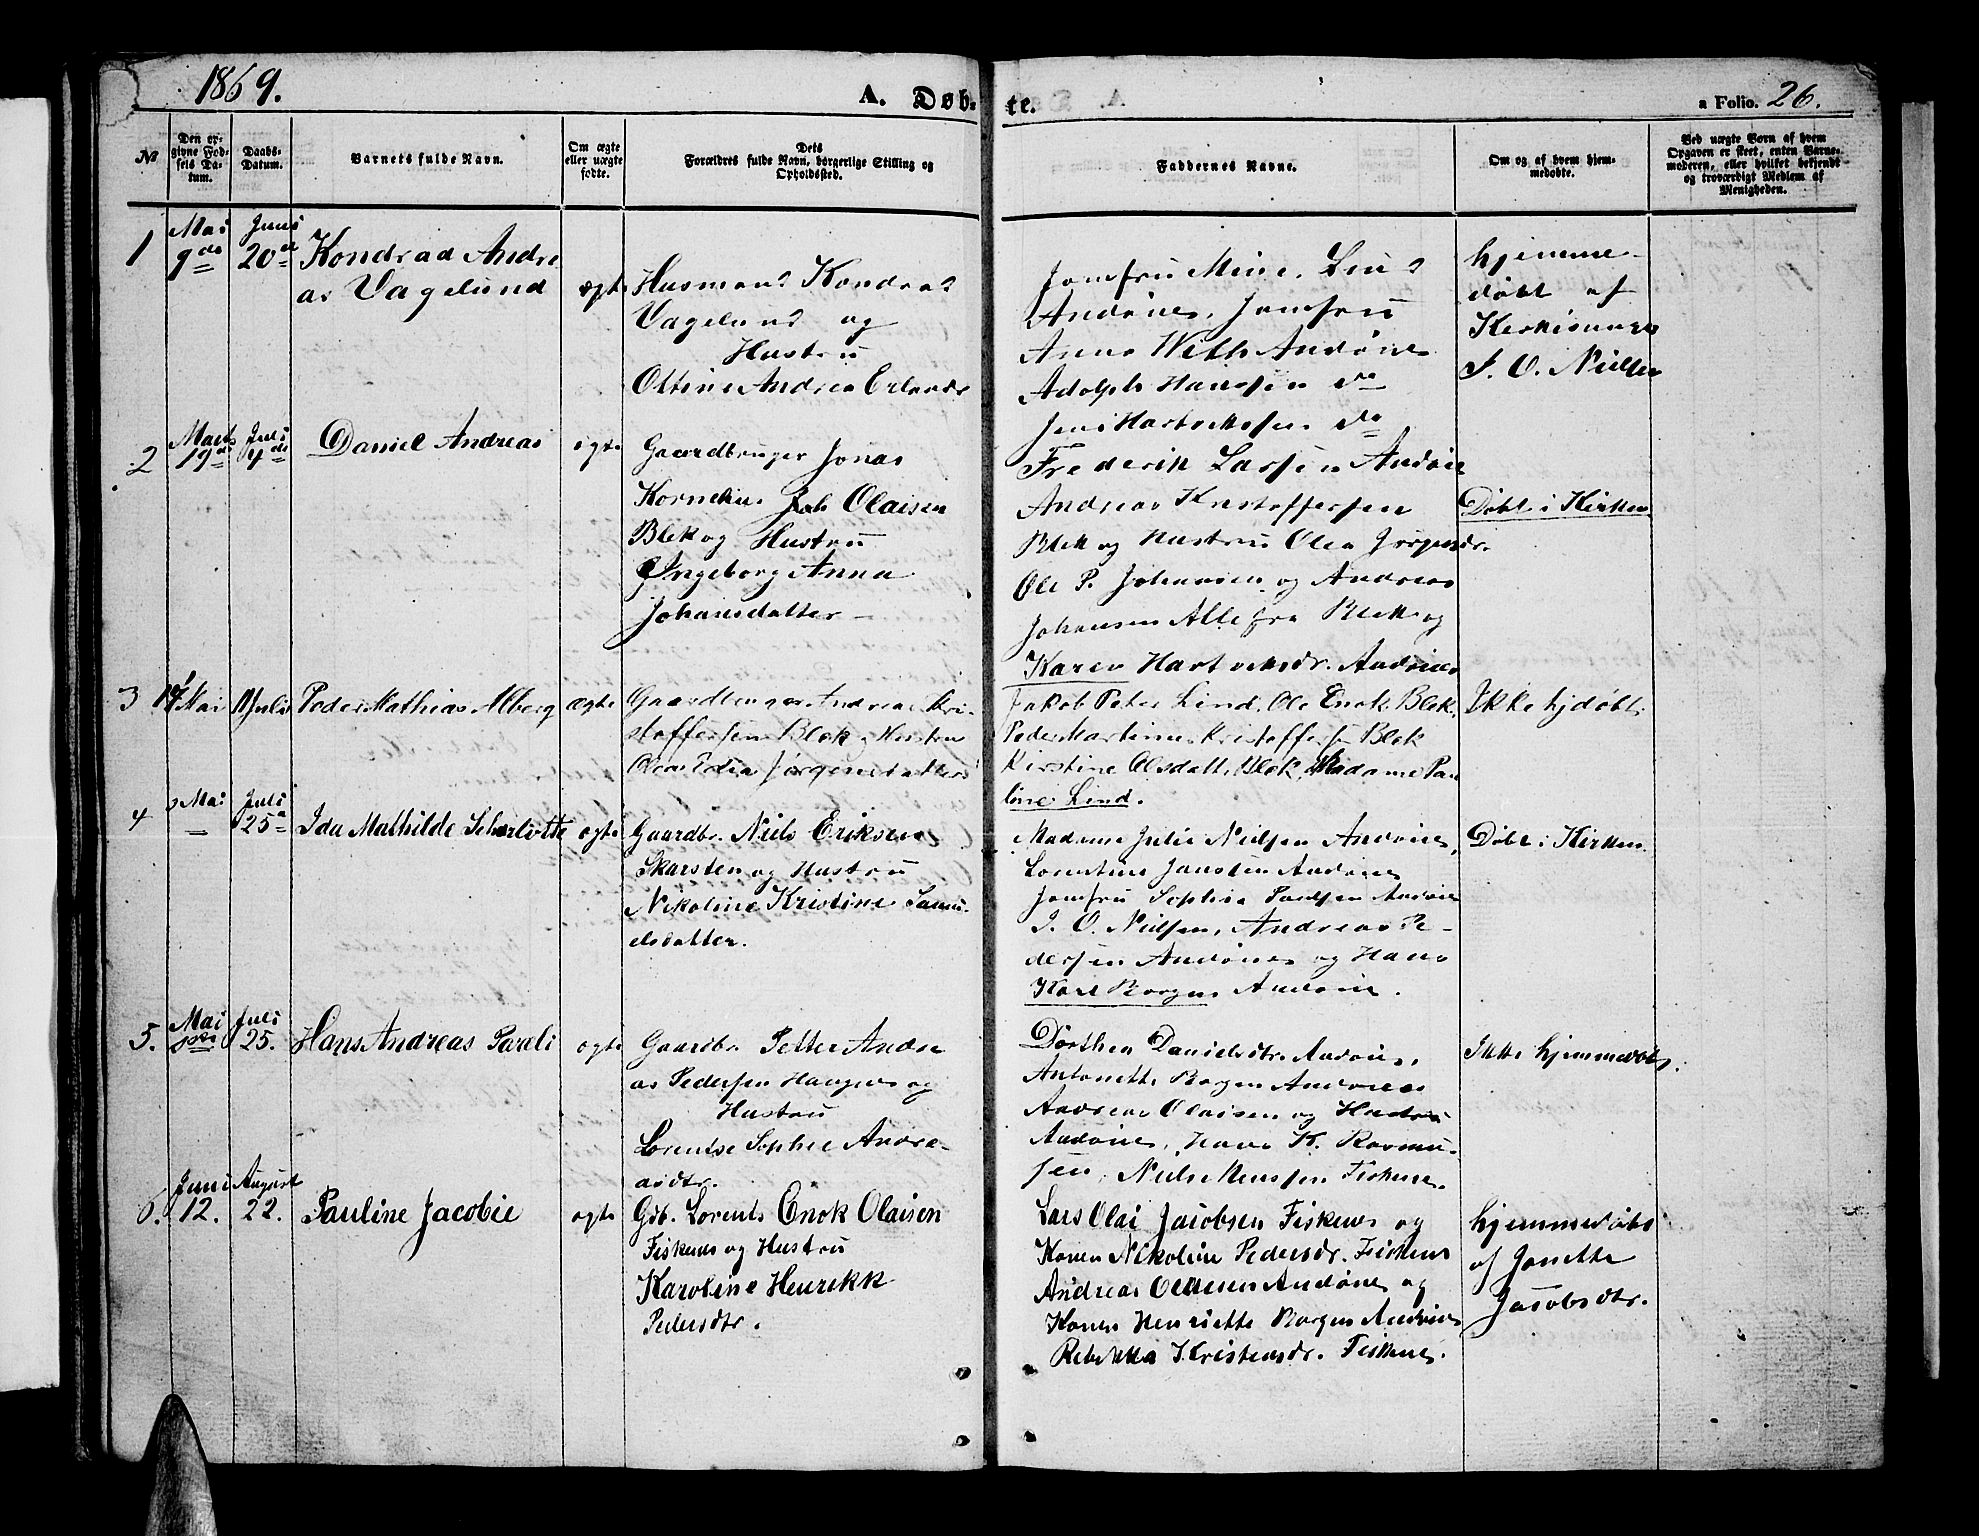 1869.
A. Døb-
te.
a Folio. 26.
No
Den op-
givne Fød-
sels Da-
tum.
Daabs-
Datum.
Barnets fulde Navn.
Om ægte
eller uægte
fødte.
Dets
Forældres fulde Navn, borgerlige Stilling og
Opholdssted.
Faddernes Navne.
Om og af hvem hjem-
medøbte.
Ved uægte Børn af hvem
Opgaven er skeet, enten Barne-
moderen, eller hvilket bekjendt
og troværdigt Medlem af
Menigheden.
1
Mai
9de
Juni
20de
Kondrad Andre
as Vagelund
ægte
Husmand Kondrad
Vagelund og
Hustru
Ottine Andrea Erlandsdr
Jomfru Mine Lind
Andønes, Jomfru
Anna With Andønes
Adolph Hanssen do
Jens Hartviksen do
Frederik Larsen Andønes
hjemme-
døbt af
Kirkesanger
J. O. Nielsen
2
Marts
19de
Juli
4de
Daniel Andreas
ægte
Gaardbruger Jonas
Kornelius Olaisen
Blek og Hustru
Ingeborg Anna
Johansdatter
Andreas Kristoffersen
Blek og Hustru Olea Jørgensdr.
Ole P. Johansen og Andreas
Johansen Alle fra Blek og
Karen Hartviksdr. Andønes
Døbt i Kirken
3
Mai
11 Juli
Peder Mathias Alberg
ægte
Gaardbruger Andreas Kri-
stoffersen Blek, Hustru
Olea Edia Jørgensdatter
Jakob Peter Lind, Ole Enok Blek,
Peder Martinus Kristoffersen Blek
Kirstine Olsdatt. Blek, Madame Pau
line Lind.
Ikke hjdøbt
4
Mai
Juli
25de
Ida Mathilde Scharlotte
ægte
Gaardbr. Niels Eriksen
Skarsten og Hustru
Nikoline Kristine Samu-
elsdatter.
Madame Julie Nielsen Andønes,
Lorentine Jansten Andønes
Jomfru Sophie Paulsen Andønes
J. O. Nielsen, Andreas Pe-
dersen Andønes og Hans
Karl Borgen Andønes.
Døbt i Kirken
5.
Mai
Juli
25.
Hans Andreas Pareli
ægte
Gaardbr. Petter Andre
as Pedersen Haugnes og
Hustru
Lorentse Sophie Andre-
asdtr.
Dorthea Danielsdtr. Andønes,
Antonette Borgen Andønes
Andreas Olaisen og Hustru
Andønes, Hans K. Rasmu-
sen, Niels Monssen Fiskenes.
Ikke hjemmedøbt.
6.
Juni
12.
August
22.
Pauline Jacobie
ægte
Gdb. Lorents Enok Olaisen
Fiskenes og Hustru
Karoline Henrikk
Pedersdtr.
Lars Olai Jacobsen Fiskenes og
Konen Nikoline Pedersdr. Fiskenes
Andreas Olaisen Andønes og
Konen Henriette Borgen Andønes
Rebekka Kristensdr. Fiskenes.
hjemmedøbt
af Jonette
Jacobsdtr.